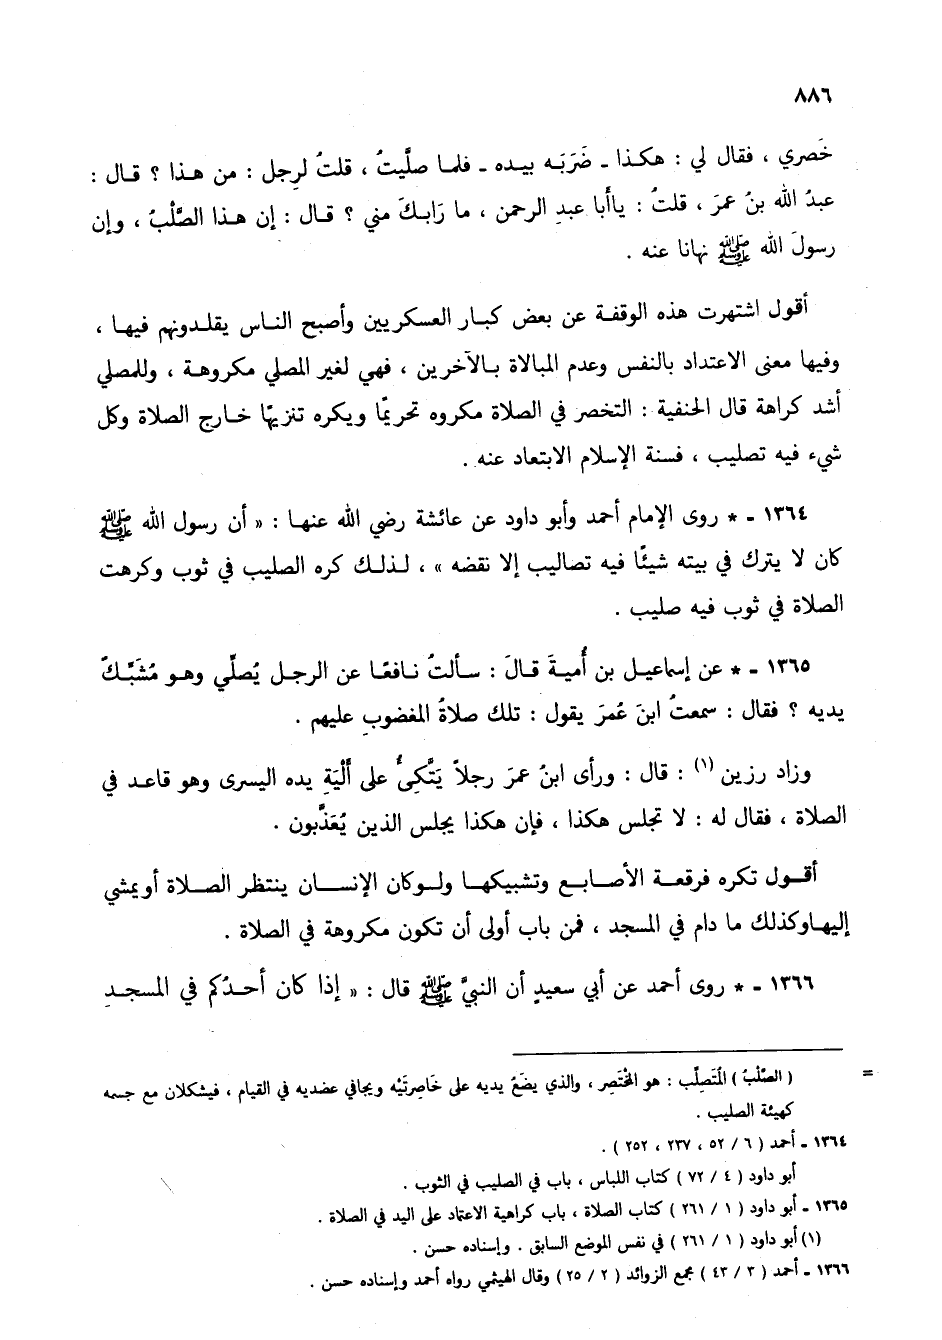 ٨٨٦
خَصري ، فقال لي : هكذا ـ ضَرَبَه بيده ـ فلما صلَّيتُ ، قلتُ لرجل : من هذا ؟ قال :
عبدُ الله بنُ عمرَ ، قلتُ : ياأَبا عبدِ الرحمن ، ما رَابكَ مني ؟ قال : إن هذا الصَّلْبُ ، وإن
رسولَ الله ﷺ نهانا عنه .
أقول اشتهرت هذه الوقفة عن بعض كبار العسكريين وأصبح الناس يقلدونهم فيها ،
وفيها معنى الاعتداد بالنفس وعدم المبالاة بالآخرين ، فهي لغير المصلي مكروهة ، وللمصلي
أشد كراهة قال الحنفية : التخصر في الصلاة مكروه تحريمًا ويكره تنزيهًا خارج الصلاة وكل
شيء فيه تصليب ، فسنة الإسلام الابتعاد عنه .
١٣٦٤ ـ * روى الإمام أحمد وأبو داود عن عائشة رضي الله عنها : « أن رسول الله ﷺ
كان لا يترك في بيته شيئًا فيه تصاليب إلا نقضه » ، لذلك كره الصليب في ثوب وكرهت
الصلاة في ثوب فيه صليب .
١٣٦٥ ـ * عن إسماعيل بن أُميةَ قالَ : سألتُ نافعًا عن الرجل يُصلِّي وهو مُشَبِّكٌ
يديه ؟ فقال : سمعتُ ابنَ عُمرَ يقول : تلك صلاةُ المغضوبِ عليهم .
وزاد رزين (١) : قال : ورأى ابنُ عمرَ رجلاً يَتَّكِئُ على أَلْيَةِ يده اليسرى وهو قاعد في
الصلاة ، فقال له : لا تجلس هكذا ، فإن هكذا يجلس الذين يُعَذَّبون .
أقول تكره فرقعة الأصابع وتشبيكها ولوكان الإنسان ينتظر الصلاة أويمشي
إليهاوكذلك ما دام في المسجد ، فمن باب أولى أن تكون مكروهة في الصلاة .
١٣٦٦ ـ * روى أحمد عن أبي سعيدٍ أن النبيَّ ﷺ قال : « إذا كان أحدُكم في المسجدِ
= ( الصَّلْبُ ) المُتَصلِّب : هو المُخْتَصِر ، والذي يضَعُ يديه على خَاصِرتَيْه ويجافي عضديه في القيام ، فيشكلان مع جسمه
كهيئة الصليب .
١٣٦٤ ـ أحمد ( ٦ / ٥٢ ، ٢٣٧ ، ٢٥٢ ) .
أبو داود ( ٤ / ٧٢ ) كتاب اللباس ، باب في الصليب في الثوب .
١٣٦٥ ـ أبو داود ( ١ / ٢٦١ ) كتاب الصلاة ، باب كراهية الاعتماد على اليد في الصلاة .
(١) أبو داود ( ١ / ٢٦١ ) في نفس الموضع السابق . وإسناده حسن .
١٣٦٦ ـ أحمد ( ٣ / ٤٣ ) مجمع الزوائد ( ٢ / ٢٥ ) وقال الهيثمي رواه أحمد وإسناده حسن .